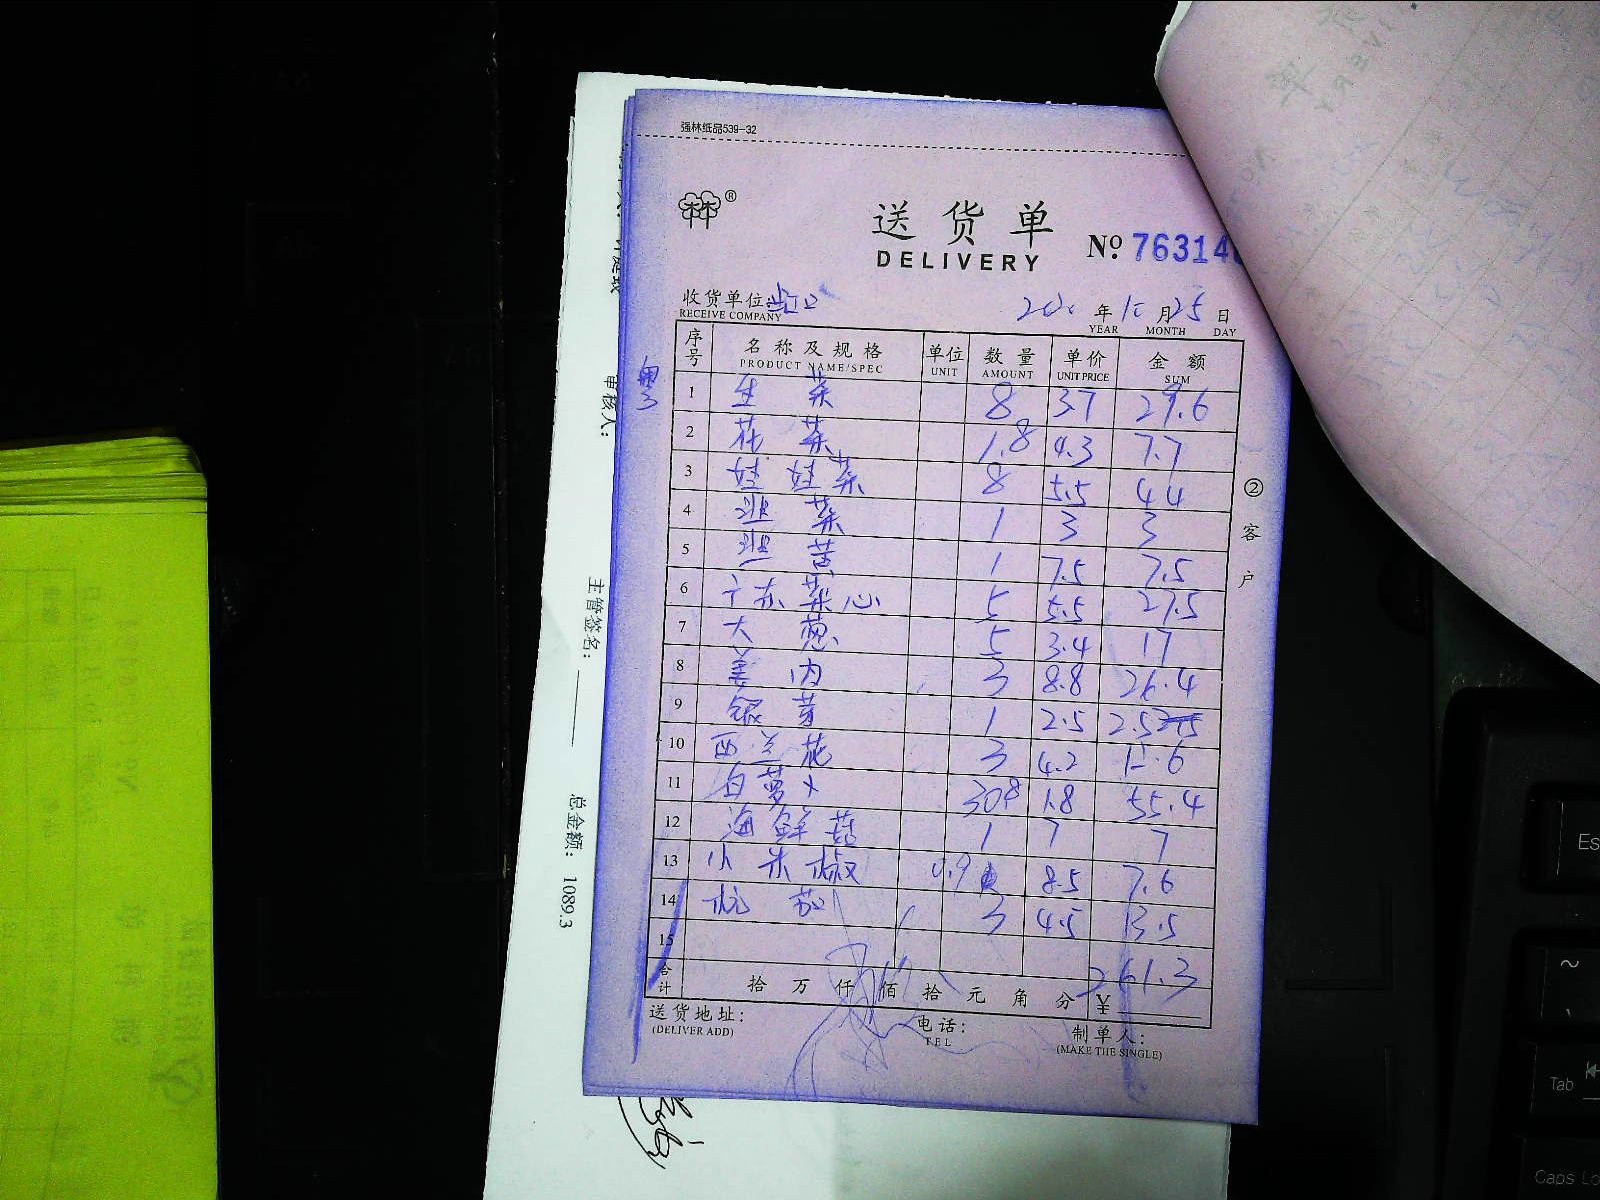 强林纸品539-32
®
送货单
DELIVERY
No. 76314
收货单位: 虹口
RECEIVE COMPANY
年 10 月 25 日
YEAR MONTH DAY
序号 名称及规格 单位 数量 单价 金额
PRODUCT NAME/SPEC UNIT AMOUNT UNIT PRICE SUM
1 生菜 8 3.7 29.6
2 花菜 1.8 4.3 7.7
3 娃娃菜 8 5.5 44
4 韭菜 1 3 3
5 韭苔 1 7.5 7.5
6 广东菜心 5 5.5 27.5
7 大葱 5 3.4 17
8 姜肉 3 8.8 26.4
9 银芽 1 2.5 2.5
10 西兰花 3 4.2 12.6
11 白萝卜 30.8 1.8 55.4
12 海鲜菇 1 7 7
13 小米椒 0.9 8.5 7.6
14 杭茄 3 4.5 13.5
15
合计 拾 万 仟 佰 拾 元 角 分 ¥ 261.3
送货地址: 电话: 制单人:
(DELIVER ADD) TEL (MAKE THE SINGLE)
②客户
审核人:
主管签名:
总金额: 1089.3
Es
~
Tab
Caps Lo